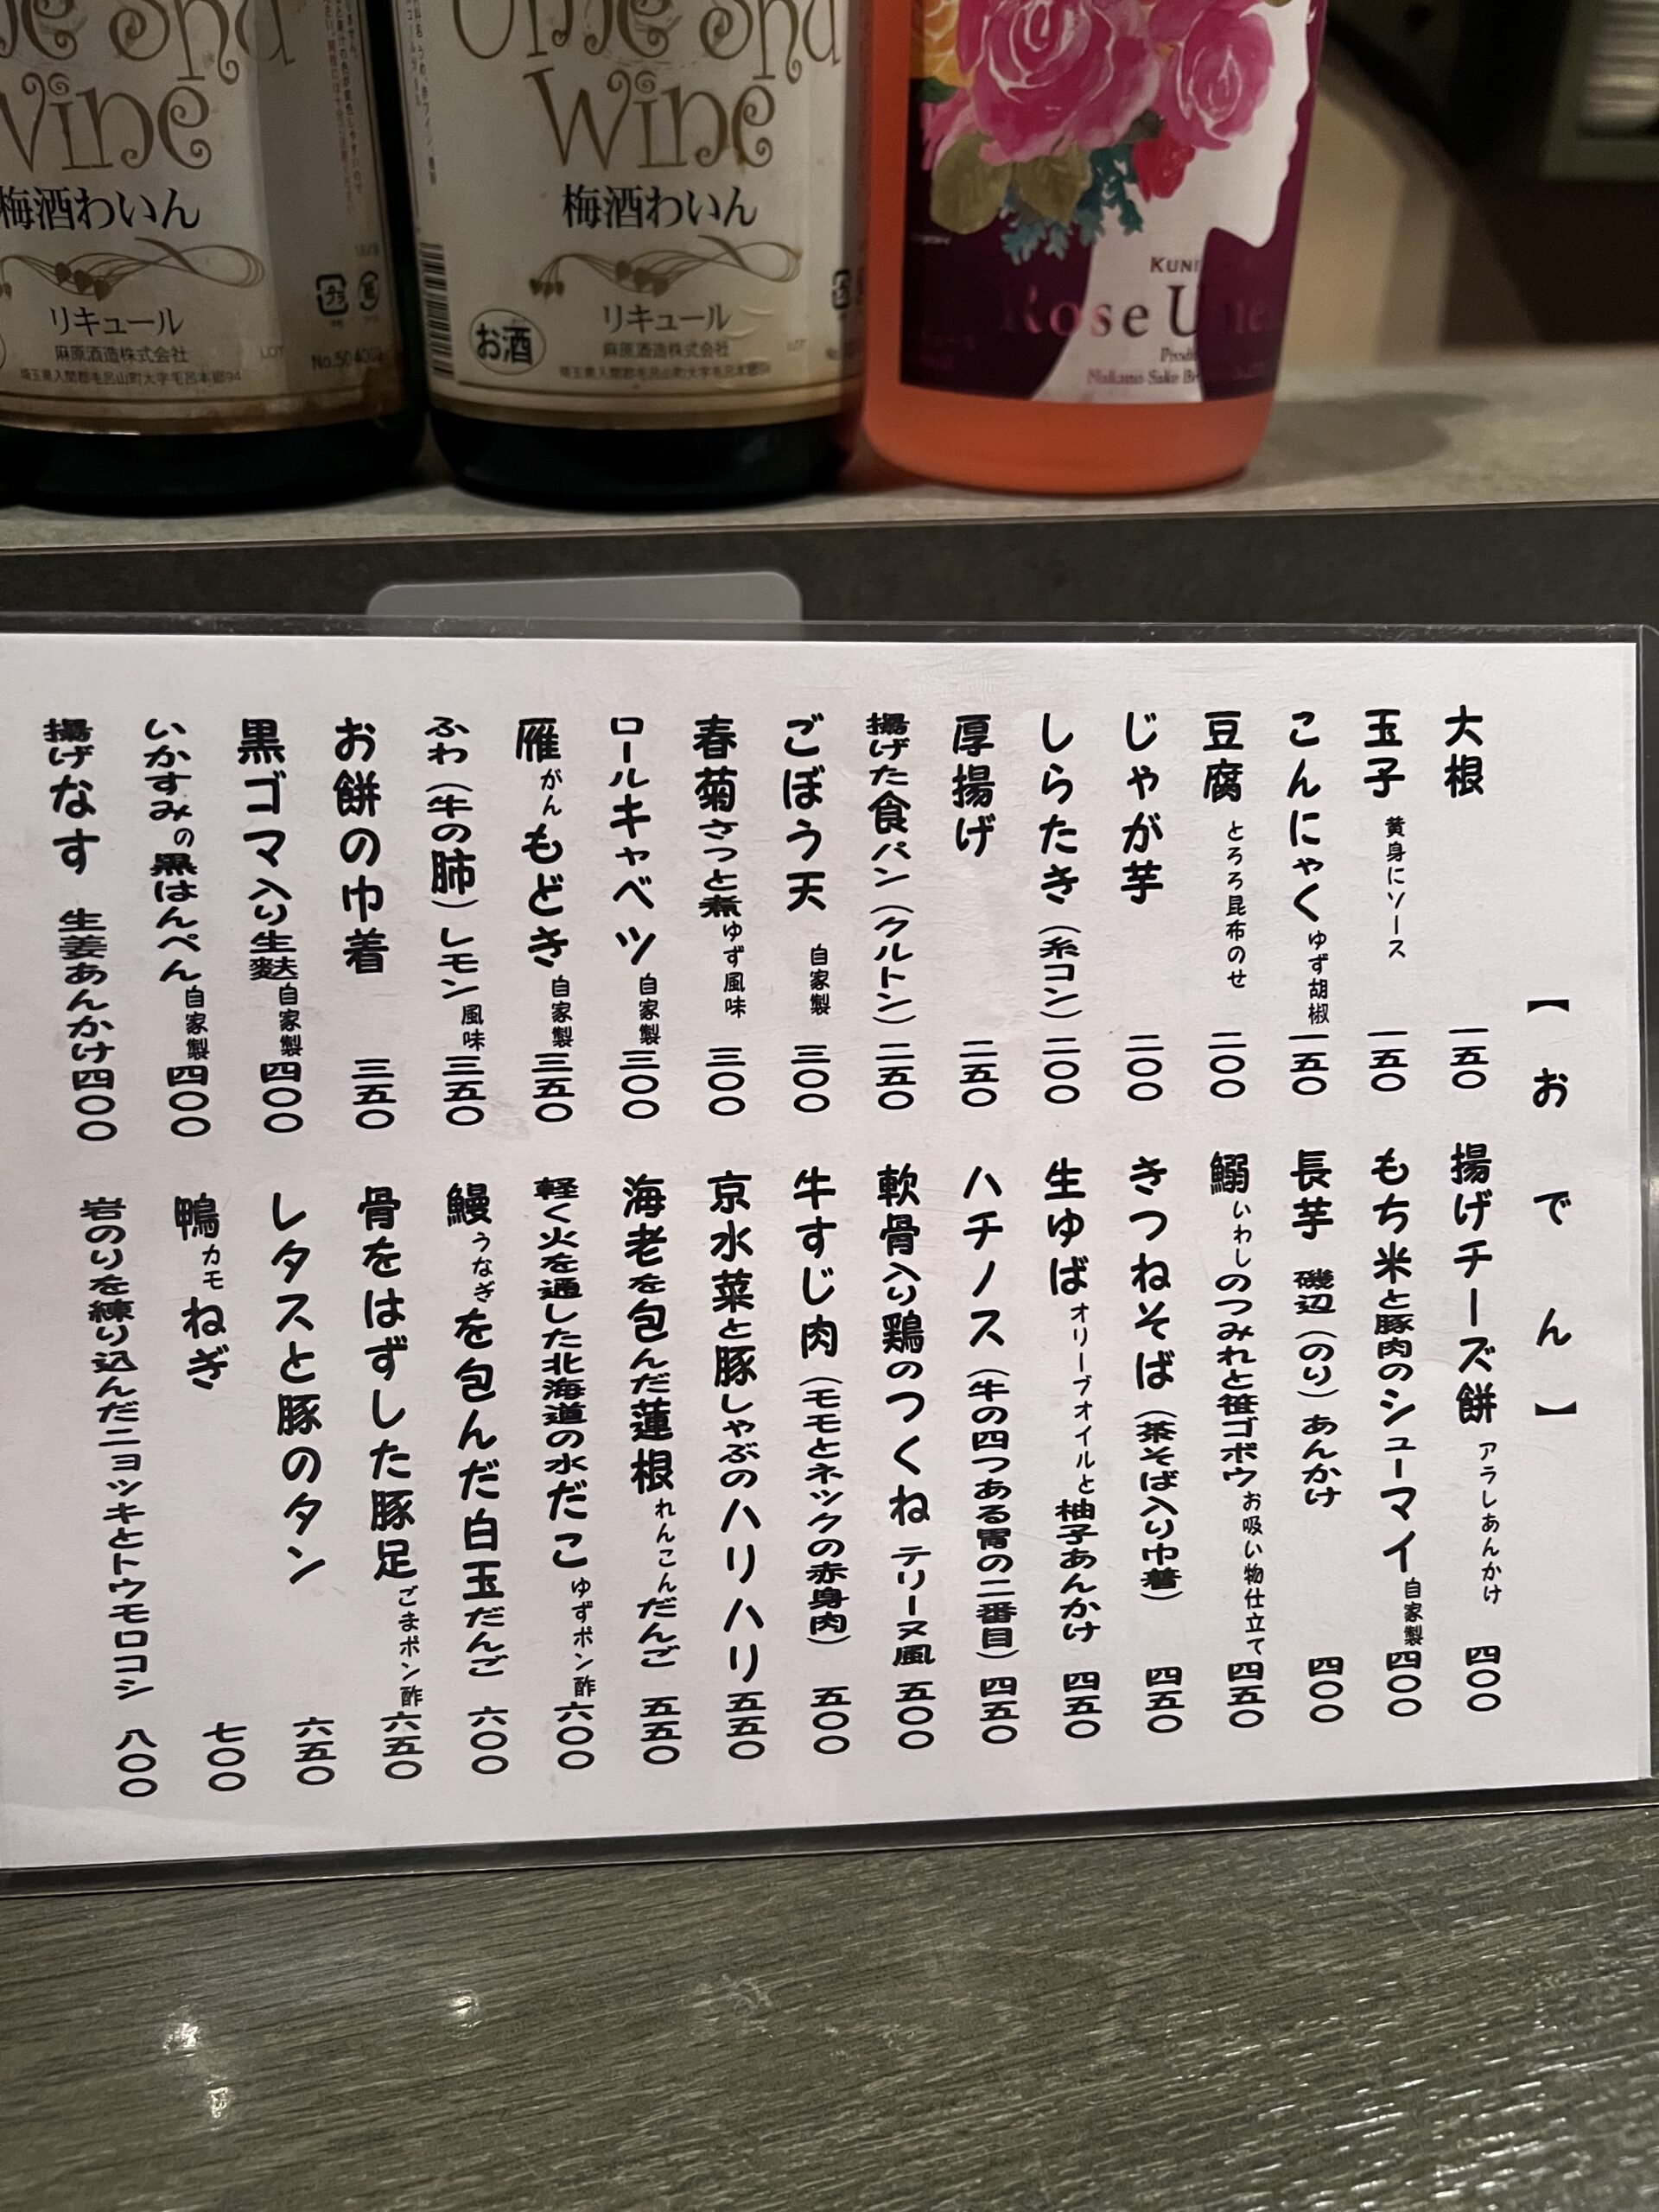 Ume Shu
Wine
梅酒わいん
リキュール
麻原酒造株式会社
埼玉県入間郡毛呂山町大字毛呂本郷94
LOT
No.50
Ume Shu
Wine
梅酒わいん
お酒
リキュール
麻原酒造株式会社
埼玉県入間郡毛呂山町大字毛呂本郷94
LOT
KUNI
Rose Ume
Nakano Sake
【おでん】
大根 一五〇
玉子 黄身にソース 一五〇
こんにゃく ゆず胡椒 一五〇
豆腐 とろろ昆布のせ 二〇〇
じゃが芋 二〇〇
しらたき(糸コン) 二〇〇
厚揚げ 二五〇
揚げた食パン(クルトン) 二五〇
ごぼう天 自家製 三〇〇
春菊さっと煮 ゆず風味 三〇〇
ロールキャベツ 自家製 三〇〇
雁がんもどき 自家製 三五〇
ふわ(牛の肺)レモン風味 三五〇
お餅の巾着 三五〇
黒ゴマ入り生麩 自家製 四〇〇
いかすみの黒はんぺん 自家製 四〇〇
揚げなす 生姜あんかけ 四〇〇
揚げチーズ餅 アラしあんかけ 四〇〇
もち米と豚肉のシューマイ 自家製 四〇〇
長芋 磯辺(のり)あんかけ 四〇〇
鰯いわしのつみれと笹ゴボウ お吸い物仕立て 四五〇
きつねそば(茶そば入り巾着) 四五〇
生ゆば オリーブオイルと柚子あんかけ 四五〇
ハチノス(牛の四つある胃の二番目) 四五〇
軟骨入り鶏のつくね テリーヌ風 五〇〇
牛すじ肉(モモとネックの赤身肉) 五〇〇
京水菜と豚しゃぶのハリハリ 五五〇
海老を包んだ蓮根れんこんだんご 五五〇
軽く火を通した北海道の水だこ ゆずポン酢 六〇〇
鰻うなぎを包んだ白玉だんご 六〇〇
骨をはずした豚足 ごまポン酢 六五〇
レタスと豚のタン 六五〇
鴨カモねぎ 七〇〇
岩のりを練り込んだニョッキとトウモロコシ 八〇〇